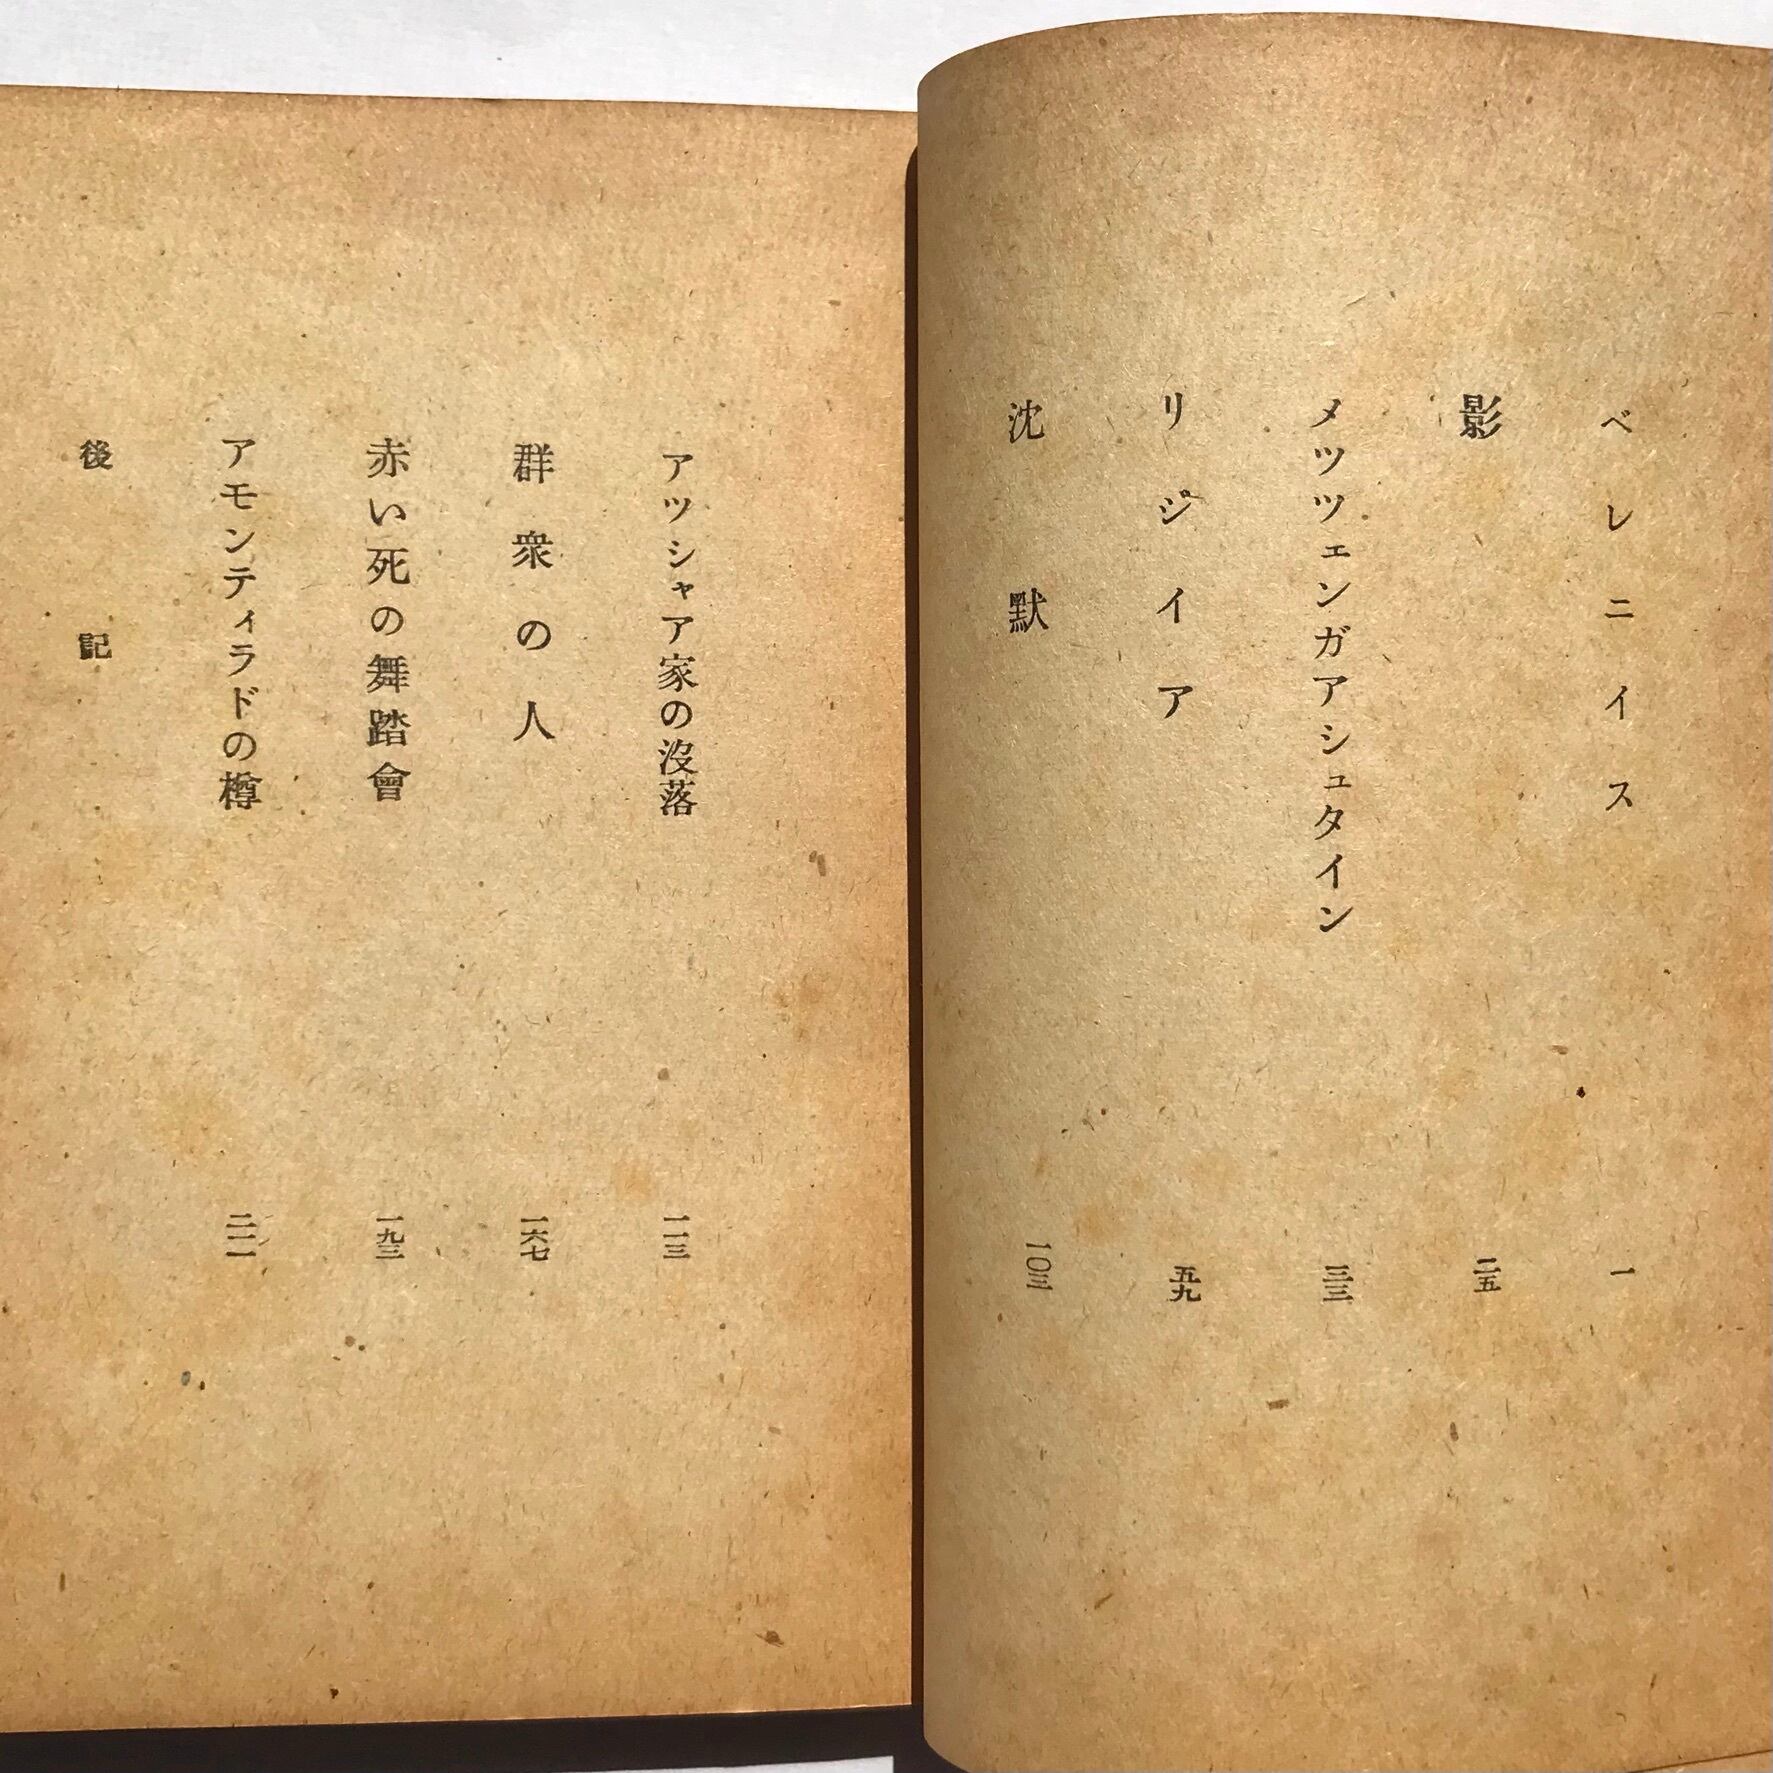 ベレニイス 一
影 二五
メツツェンガアシュタイン 三三
リジイア 五九
沈默 一〇三
アツシャア家の沒落 一一三
群衆の人 一六七
赤い死の舞踏會 一九三
アモンティラドの樽 二一一
後記